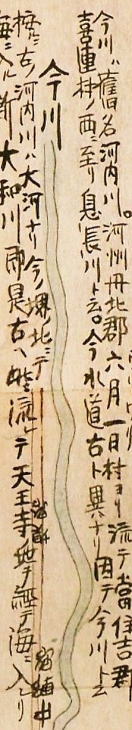 今川ハ舊名河内川。河州丹北郡六月一日村ヨリ流テ當住吉郡
喜連村ノ西ニ至リ息長川ト云。今水道古ト異ナリ因テ今川ト云
今川
按ニ古ノ河内川ハ大河ナリ今ノ堺北ニテ
海ニ入ル新大和川即是古ハ此流レテ天王寺地ヲ經テ海ニ入レリ